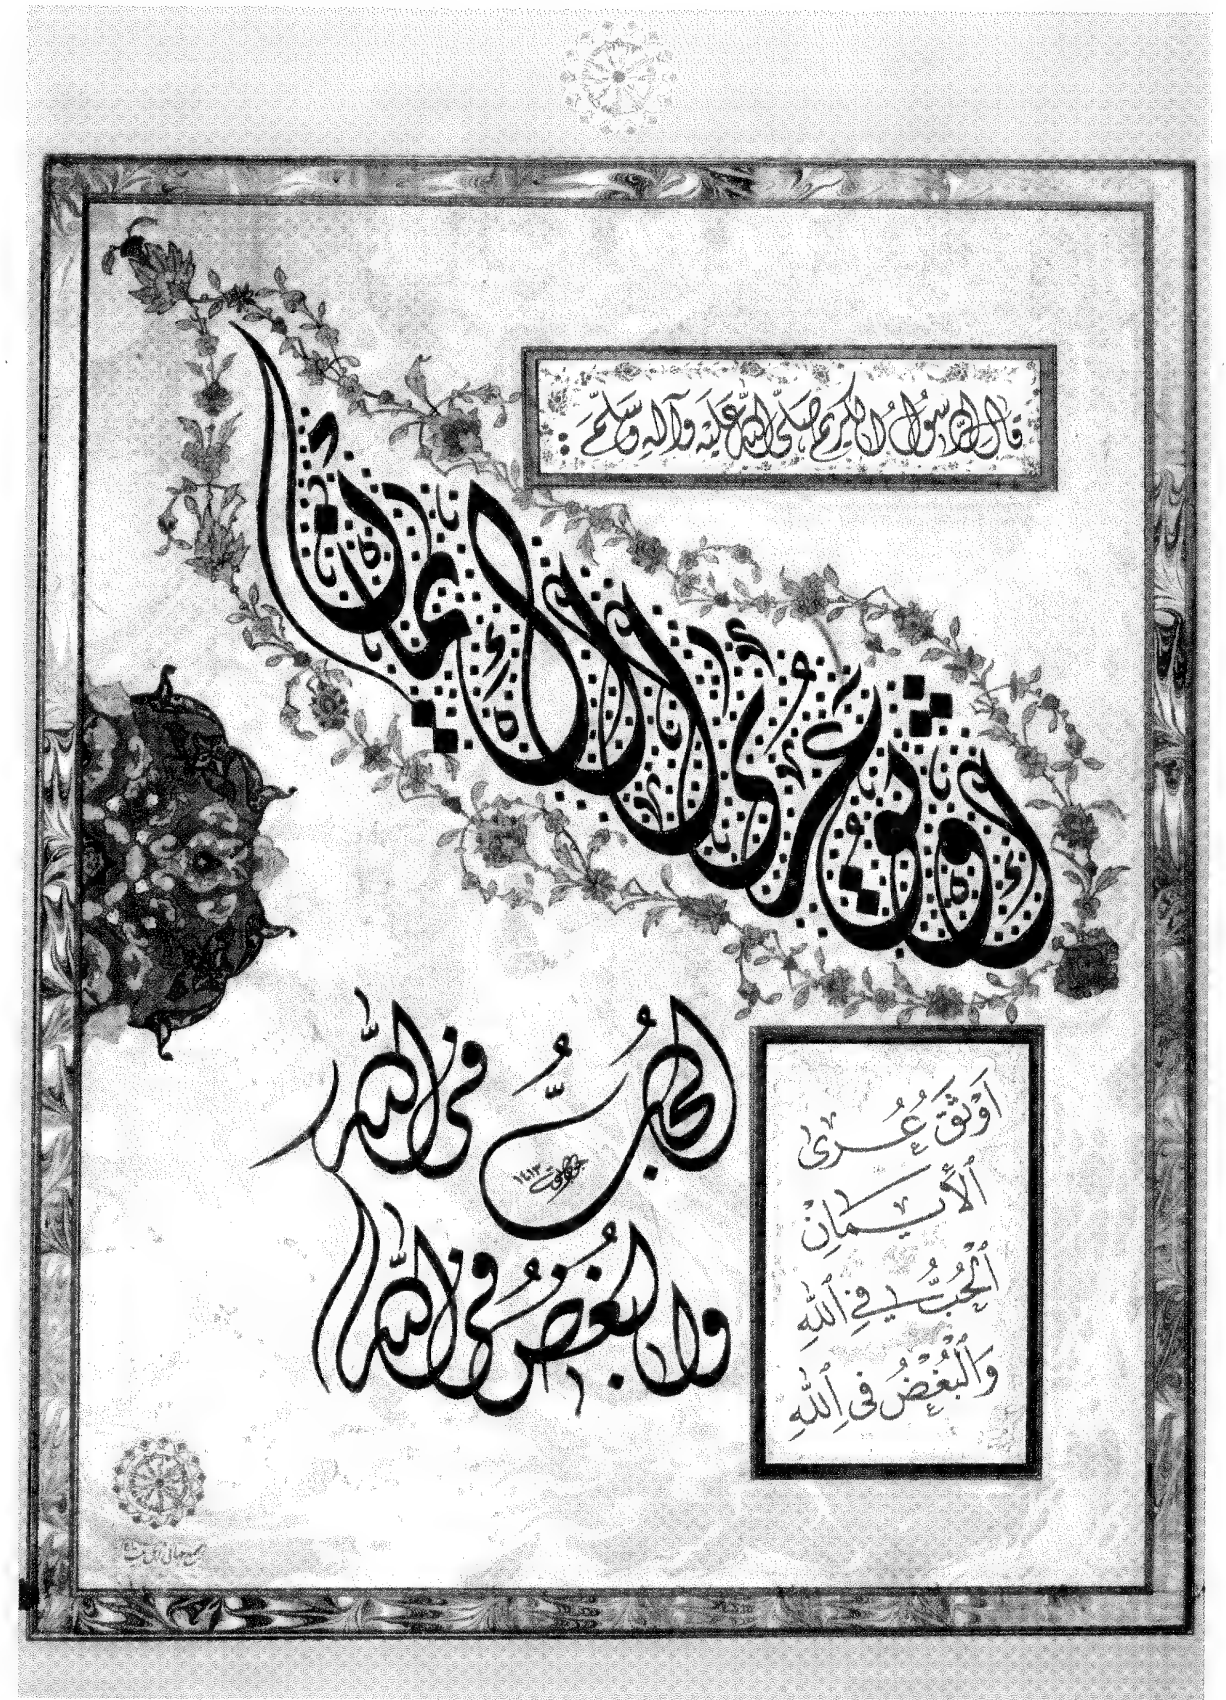 قال الرسول الكريم صلى الله عليه وآله وسلم :
أوثق عرى الإيمان
الحب في الله
١٤١٣
والبغض في الله
أَوْثَقُ عُرَى
ٱلْأَيمَانِ
ٱلْحُبُّ فِي ٱللهِ
وَٱلْبُغْضُ فِي ٱللهِ